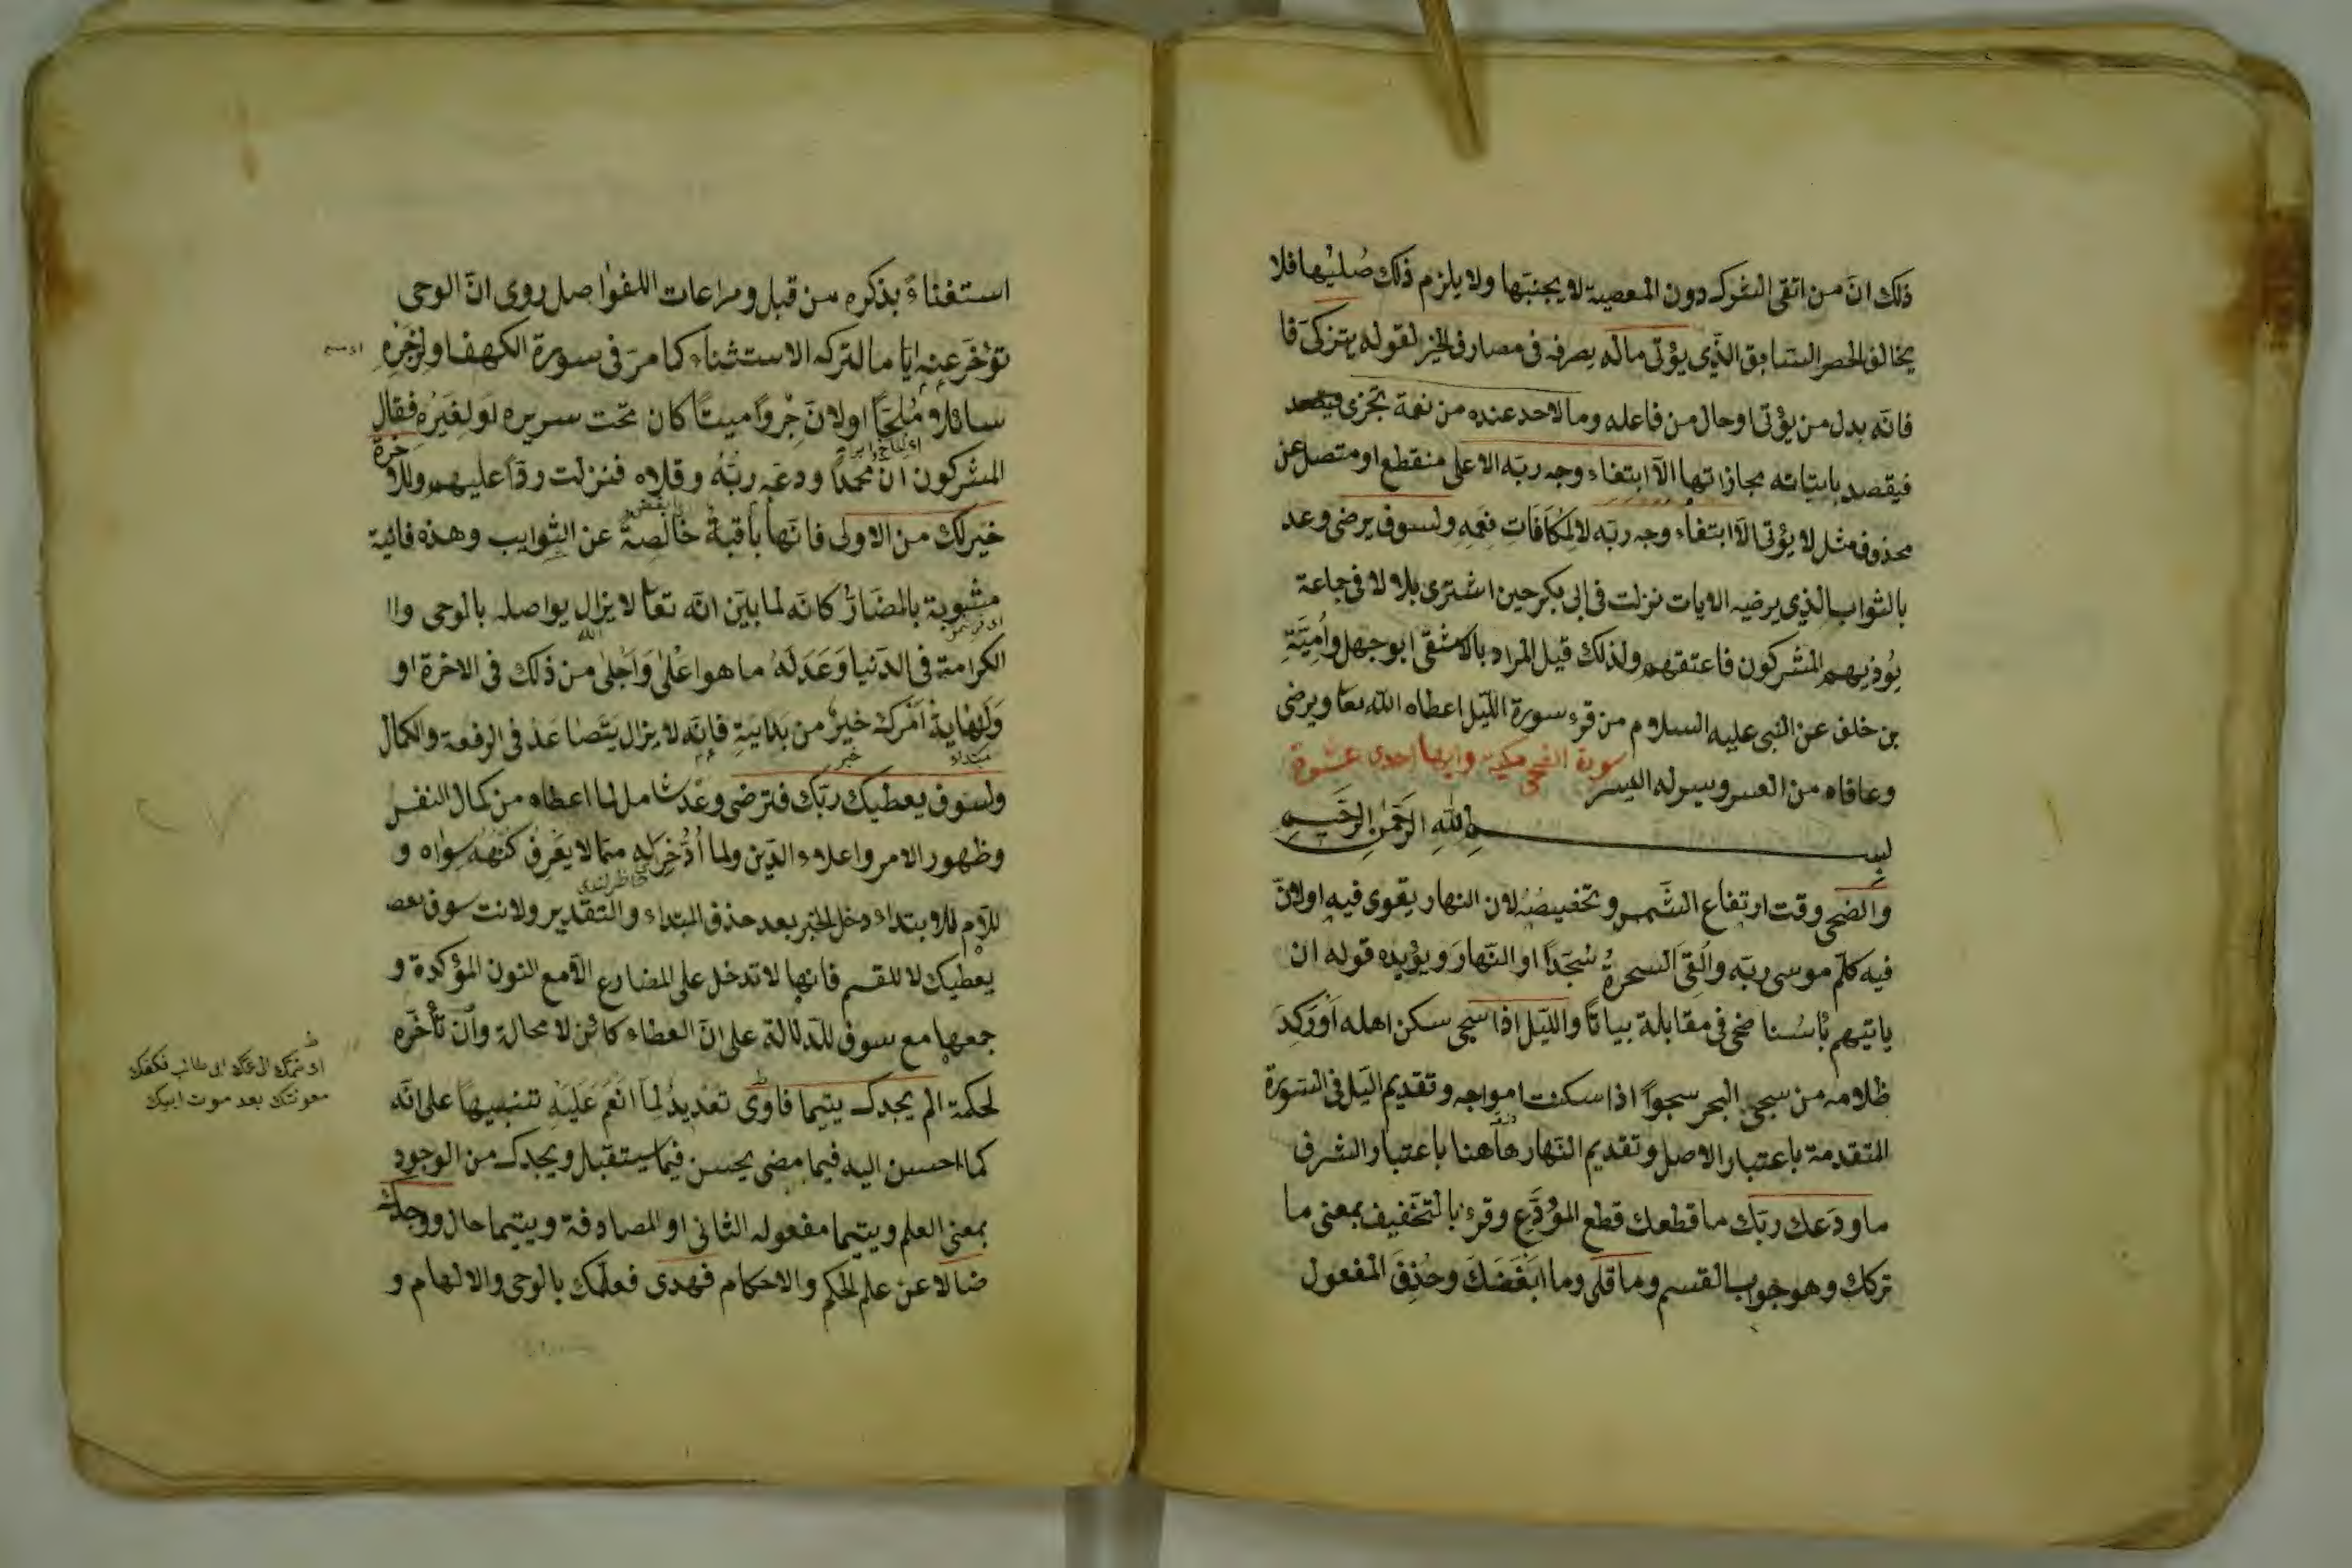 ذلك انّ من اتقى الشرك دون المعصية لا يجنبها ولا يلزم ذلك صُليها فلا
يخالف الحصر السابق الّذى يؤتى ماله يصرفه فى مصارف الخير لقوله يتزكى فا
فانّه بدل من يؤتى او حال من فاعله وما لاحد عنده من نعمة تجزى فيقصد
فيقصد بايتائه مجازاتها الّا ابتغاء وجه ربّه الاعلى منقطع او متصل عن
محذوف مثل لا يؤتى الّا ابتغاء وجه ربّه لا لمكافات نعمه ولسوف يرضى وعد
بالثواب الذى يرضيه الايات نزلت فى ابى بكر حين اشترى بلالا فى جماعة
يُوذيهم المشركون فاعتقهم ولذلك قيل المراد بالاشقى ابو جهل وأميّة
بن خلف عن النبى عليه السلام من قرء سورة الليل اعطاه الله تعا ويرضى
وعافاه من العسر ويسر له اليسر
سورة الضحى مكية وايها احدى عشرة
بسم الله الرّحمن الرّحيم
والضحى وقت ارتفاع الشّمس وتخصيصُه لان النهار يقوى فيه او لانّ
فيه كلّم موسى ربّه والقى السحرةُ سُجّدًا او النّهار ويؤيده قوله ان
ياتيهم بأسُنا ضحى فى مقابلة بياتًا والليل اذا سجى سكن اهله او رَكدَ
ظلامه من سجى البحر سجوًا اذا سكنت امواجه وتقديم اليل فى السّورة
المتقدمة باعتبار الاصل وتقديم النّهار هاهنا باعتبار الشرف
ما ودّعك ربّك ما قطعك قطع المُودِّع وقرء بالتّخفيف بمعنى ما
تركك وهو جواب القسم وما قلى وما ابغَضَكَ وحُذِفَ المفعول
استغناءً بذكره من قبل ومراعات للفواصل روى انّ الوحى
تؤخّر عنه ايّاما لتركه الاستثناء كما مرّ فى سورة الكهف او لزَجْرِه
سائلا مُلِحًّا او لانّ جِروًا ميتًا كان تحت سريره او لغيره فقال
المشركون انّ محمدًا ودعه ربّهُ وقلاه فنزلت ردًّا عليهم وللاخرة
خير لك من الاولى فانّها باقية خالصةٌ عن الشّوايب وهذه فانية
مشوبة بالمضارّ كانّه لما بيّن انّه تعا لا يزال يواصله بالوحى وا
الكرامة فى الدّنيا وعَدَ لهُ ما هو اعْلى وَاَجْلى من ذلك فى الاخرة او
وَلنهايةُ امْرك خيرٌ من بدايتهِ فانّه لا يزال يتَصاعَدُ فى الرفعة والكمال
مبتداء خبر
ولسوف يعطيك ربّك فترضى وعْدٌ شامل لما اعطاه من كمال النفس
وظهور الامر واعلاء الدّين ولما اُدُّخِر له ممّا لا يعْرِف كُنْهَهُ سِواه و
للّام للابتداء دخل الخبر بعد حذف المبتداء والتّقدير ولانت سوف
يعطيك لا للقسم فانها لا تدخل على المضارع الّا مع النون المؤكدة و
جمعها مع سوف للدّلالة على انّ العطاء كائن لا محالة وان تأخّره
لحكمة الم يجدك يتيما فاوى تعْديدٌ لما انعَم عَليهِ تنبيهًا على انّه
كما احسن اليه فيما مضى يحسن فيما يستقبل ويجدك من الوجود
بمعنى العلم ويتيما مفعوله الثانى او المصادفة ويتيما حال ووجدك
ضالا عن علم الحكم والاحكام فهدى فعلّمك بالوحى والالهام و
اى ضمّك الى عمّك ابى طالب فكفّك
معونتك بعد موت ابيك